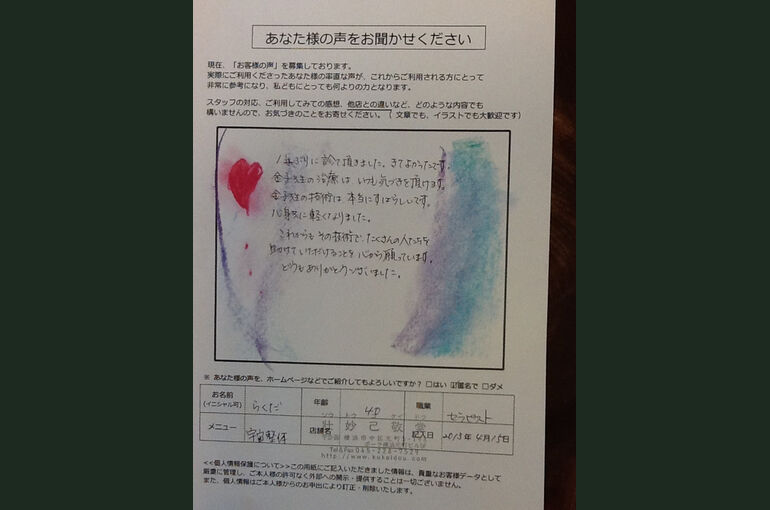 あなた様の声をお聞かせください
現在、「お客様の声」を募集しております。
実際にご利用くださったあなた様の率直な声が、これからご利用される方にとって
非常に参考になり、私どもにとっても何よりの力となります。
スタッフの対応、ご利用してみての感想、他店との違いなど、どのような内容でも
構いませんので、お気づきのことをお寄せください。（ 文章でも、イラストでも大歓迎です）
1年ぶりに診て頂きました。きてよかったです。
金子先生の治療は、いつも気づきを頂けます。
金子先生の技術は本当にすばらしいです。
心身共に軽くなりました。
これからもその技術で、たくさんの人たちを
助けていただけることを心から願っています。
どうもありがとうございました。
※ あなた様の声を、ホームページなどでご紹介してもよろしいですか？ □はい ☑匿名で □ダメ
お名前 (イニシャル可) らくだ 年齢 40 職業 セラピスト
メニュー 宇宙整体 店舗名 妙己敬堂 記入日 2013年4月15日
横浜市中区元町
Tel&Fax 045-228-7529
http://www.kukeidou.com
<<個人情報保護について>>この用紙にご記入いただきました情報は、貴重なお客様データとして
厳重に管理し、ご本人様の許可なく外部への開示・提供することは一切ございません。
また、個人情報はご本人様からのお申出により訂正・削除いたします。